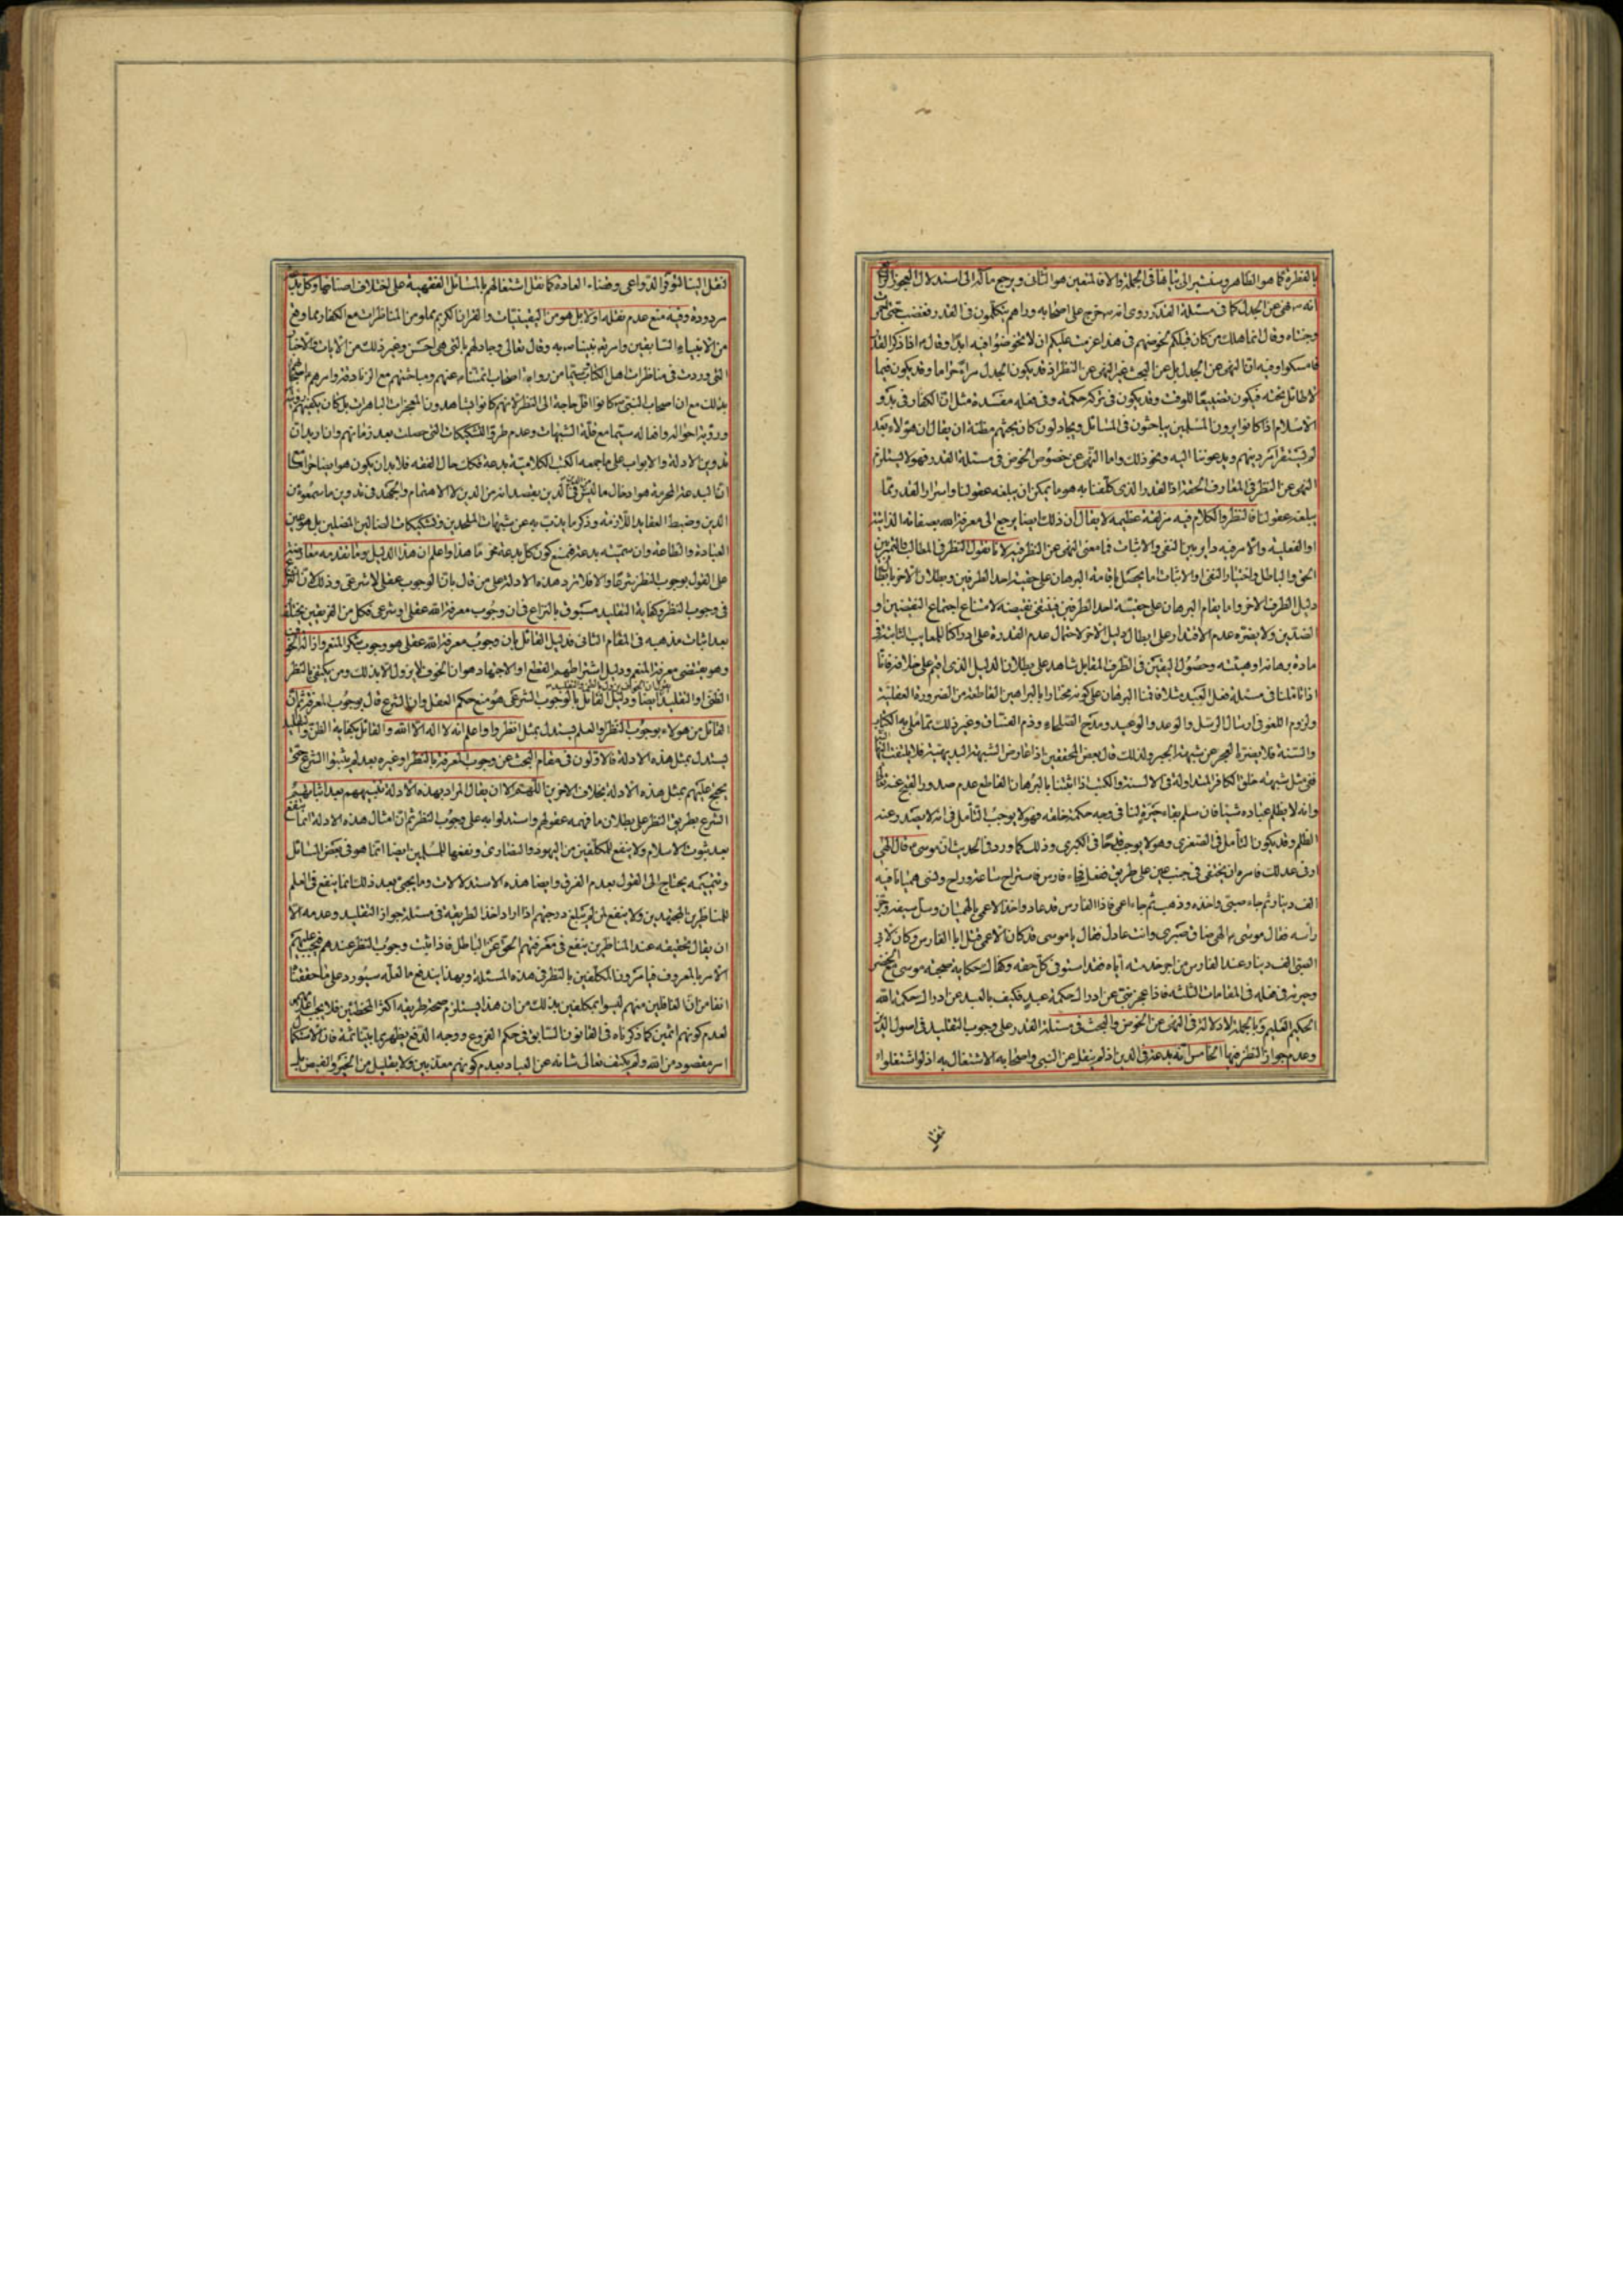 بالفطرة كما هو الظاهر وسنشير الى بيانها في الجملة والا فالمتعين هو الثاني ويرجع ماله الى استدلال العجوز
انه ص نهى عن الجدل كما في مسئلة القدر روى انه ص خرج على اصحابه وراهم يتكلمون في القدر فغضب حتى احمرت
وجنتاه وقال انما هلك من كان قبلكم لخوضهم في هذا عزمت عليكم ان لا تخوضوا فيه ابدا وقال ص اذا ذكر القدر
فامسكوا وفيه ان النهي عن الجدل بل عن البحث غير النهي عن النظر اذ قد يكون الجدل مراء حراما وقد يكون فيما
لا طائل تحته فيكون تضييعا للوقت وقد يكون في تركه حكمة وفي فعله مفسدة مثل ان الكفار في بدو
الاسلام اذا كانوا يرون المسلمين يباحثون في المسائل ويجادلون كان بحثهم مظنة ان يقال ان هؤلاء بعد
لم يستقر امر دينهم ويدعوننا اليه ونحو ذلك واما النهي عن خصوص الخوض في مسئلة القدر فهو لا يستلزم
النهي عن النظر في المعارف الحقة اذ القدر الذي كلفنا به هو ما يمكن ان يبلغه عقولنا واسرار القدر مما
يبلغه عقولنا فالنظر والكلام فيه مزلقة عظيمة لا يقال ان ذلك ايضا يرجع الى معرفة الله بصفاته الذاتية
او الفعلية والامر فيه دائر بين النفي والاثبات فما معنى النهي عن النظر فيه لانا نقول النظر في المطالب والتميز بين
الحق والباطل واختيار النفي او الاثبات اما يحصل باقامة البرهان على حقية احد الطرفين وبطلان الاخر بابطال
دليل الطرف الاخر واما يقام البرهان على حقية احد الطرفين فينفى نقيضه لامتناع اجتماع النقيضين او
الضدين ولا يضره عدم الاقتدار على ابطال دليل الاخر لاحتمال عدم القدرة على ادراك المعايب الثابتة في
مادة برهانه او هيئته وحصول اليقين في الطرف المقابل شاهد على بطلان الدليل الذي اقيم على خلافه فانا
اذا تاملنا في مسئلة فعل العبد مثلا واقمنا البرهان على كونه مختارا بالبراهين القاطعة من الضرورة العقلية
ولزوم اللغو في ارسال الرسل والوعد والوعيد ومدح الصلحاء وذم الفساق وغير ذلك مما ملئ به الكتاب
والسنة فلا يضره العجز عن شبهة الجبر ولذلك قال بعض المحققين اذا عارض الشبهة البديهية فلا يلتفت اليها
ففي مثل شبهة خلق الكافر المتداولة في الالسنة والكتب اذا اثبتنا بالبرهان القاطع عدم صدور القبيح عنه تعالى
وانه لا يظلم عباده شيئا فان سلم بقاء حيرة لنا في وجه حكمة خلقه فهو لا يوجب التامل في انه لا يصدر عنه
الظلم وقد يكون التأمل في الصغرى وهو لا يوجب قدحا في الكبرى وذلك كما ورد في الحديث ان موسى ع قال الهي
ارني عدلك فامره ان يختفي في جنب عين على طريق ففعل فجاء فارس فاستراح ساعة وراح ونسي هميانا فيه
الف دينار ثم جاء صبي واخذه وذهب ثم جاء اعمى فاذا الفارس قد عاد واخذ الاعمى بالهميان وسل سيفه وحز
رأسه فقال موسى ع الهي ضاق صبري وانت عادل فقال يا موسى قد كان الاعمى قتل ابا الفارس وكان لابي
الصبي الف دينار عند الفارس من اجر خدمته اياه فقد استوفى كل حقه وكذلك حكاية صحبة موسى مع الخضر
وحيرته في فعله في المقامات الثلثة فاذا عجز نبي عن ادراك حكمة عبد فكيف بالعبد عن ادراك حكمة الله
الحكيم العليم وبالجملة لا دلالة في النهي عن الخوض والبحث في مسئلة القدر على وجوب التقليد في اصول الدين
وعدم جواز النظر فيها الخامس انه بدعة في الدين اذ لم ينقل عن النبي واصحابه الاشتغال به اذ لو اشتغلوا
لنقل الينا لتوفر الدواعي وقضاء العادة كما نقل اشتغالهم بالمسائل الفقهية على اختلاف اصنافها وكل بدعة
مردودة وفيه منع عدم نقله اولا بل هو من اليقينيات والقران الكريم مملو من المناظرات مع الكفار وما وقع
من الانبياء السابقين وامر به نبينا ص به وقال تعالى وجادلهم بالتي هي احسن وغير ذلك من الايات والاخبار
التي وردت في مناظرات اهل الكتاب سيما من رواية اصحاب ائمتنا ع عنهم ومباحثهم مع الزنادقة وامرهم اصحابهم
بذلك مع ان اصحاب النبي ص كانوا اقل حاجة الى النظر لانهم كانوا يشاهدون المعجزات الباهرات بل كان يكفيهم رؤيته
ورؤية احواله وافعاله سيما مع قلة الشبهات وعدم طرو التشكيكات التي حصلت بعد زمانهم وان اريد ان
تدوين الادلة والابواب على ما جمعه الكتب الكلامية بدعة فكذلك حال الفقه فلا بد ان يكون هو ايضا حراما
انما البدعة المحرمة هو ادخال ما ليس من الدين في الدين بقصد انه من الدين لا الاهتمام والجهد في تدوين ما سمعوه من
الدين وضبط العقايد اللازمة وذكر ما يذب به عن شبهات الملحدين وتشكيكات الضالين المضلين بل هو عين
العبادة والطاعة وان سميته بدعة فيمنع كون كل بدعة محرما هذا واعلم ان هذا الدليل وما تقدمه
على القول بوجوب النظر شرعا والا فلا يرد هذه الادلة على من قال بان الوجوب عقلي لا شرعي وذلك لان النزاع
في وجوب النظر وكفاية التقليد مسبوق بالنزاع في ان وجوب معرفة الله عقلي او شرعي فكل من الفريقين يختلف
بعد اثبات مذهبه في المقام الثاني فدليل القائل بان وجوب معرفة الله عقلي هو وجوب شكر المنعم وازالة الخوف
وهو يقتضي معرفة المنعم ودليل اشتراطهم القطع او الاجتهاد هو ان الخوف لا يزول الا بذلك ومن يكتفي بالنظر
الظني او التقليد ايضا ودليل القائل بالوجوب الشرعي هو منع حكم العقل وان الشرع قال بوجوب المعرفة ثم ان
القائل من هؤلاء بوجوب النظر والعلم يستدل بمثل انظروا واعلم انه لا اله الا الله والقائل بكفاية الظن والتقليد
يستدل بمثل هذه الادلة فالاولون في مقام البحث عن وجوب المعرفة بالنظر او غيره بعد لم يثبتوا الشرع حتى
يحتج عليهم بمثل هذه الادلة بخلاف الاخرين اللهم الا ان يقال المراد بهذه الادلة تنبيههم بعد اثباتهم
الشرع بطريق النظر على بطلان ما فهمه عقولهم واستدلوا به على وجوب النظر ثم ان امثال هذه الادلة انما ينفع
بعد ثبوت الاسلام ولا ينفع للمكلفين من اليهود والنصارى ونفعها للمسلمين ايضا انما هو في بعض المسائل
وتتميمه يحتاج الى القول بعدم الفرق وايضا هذه الاستدلالات وما يجيئ بعد ذلك انما ينفع في العلم
للمناظرين المجتهدين ولا ينفع لمن لم يبلغ درجتهم اذا اراد اخذ الطريقة في مسئلة جواز التقليد وعدمه الا
ان يقال تحقيقه عند المناظرين ينفع في معرفتهم الحق عن الباطل فاذا يثبت وجوب النظر عندهم فيجب عليهم
الامر بالمعروف فيامرون المكلفين بالنظر في هذه المسئلة وبهذا يندفع ما لعله سيورد على ما حققنا
انفا من ان الغافلين منهم ليسوا بمكلفين بذلك من ان هذا يستلزم صحة طريقة اكثر المخطئين فلا يجب
لعدم كونهم اثمين كما ذكرناه في القانون السابق في حكم الفروع ووجه الدفع يظهر مما بيناه ثمة فان الاستكمال
امر مقصود من الله ولم يكتف تعالى شانه عن العباد بعدم كونهم معذبين ولا بقليل من الخير والفيض بل